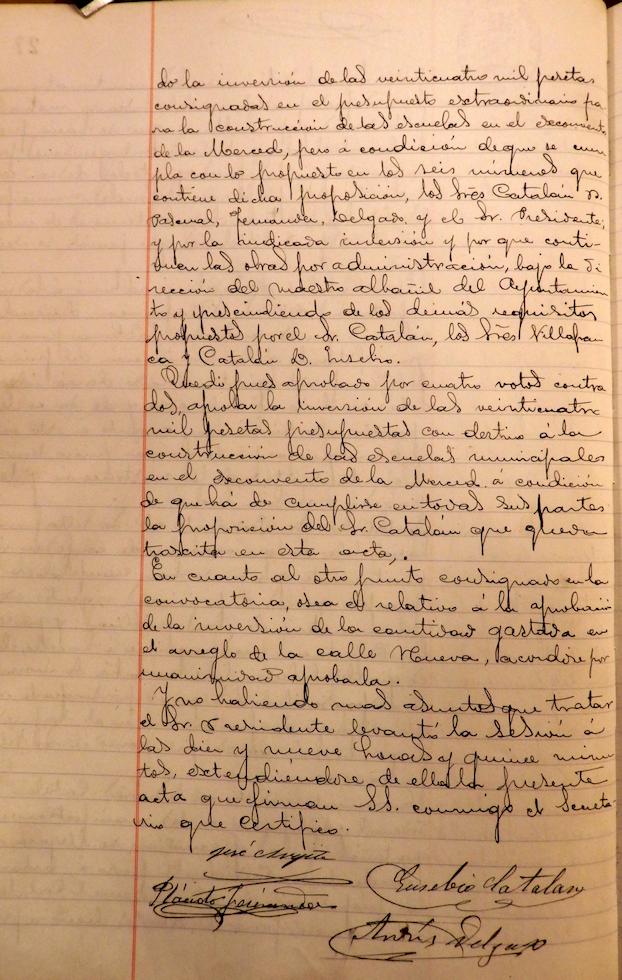 do la inversión de las veinticuatro mil pesetas
consignadas en el presupuesto extraordinario pa-
ra la construcción de las escuelas en el exconvento
de la Merced, pero á condición de que se cum
pla con lo propuesto en los seis números que
contiene dicha proposición, los Srēs Catalán D.
Pascual, Fernández, Delgado y el Sr. Presidente;
y por la indicada inversión y por que conti-
nuen las obras por administración, bajo la di
rección del maestro albañil del Ayuntamien
to y prescindiendo de los demás requisitos
propuestos por el Sr. Catalán, los Srēs Villafran
ca y Catalán D. Eusebio.
Quedó pues aprobado por cuatro votos contra
dos, aprobar la inversión de las veinticuatro
mil pesetas presupuestas con destino á la
construcción de las escuelas municipales
en el exconvento de la Merced á condición
de que há de cumplirse en todas sus partes
la proposición del Sr. Catalán que queda
trascrita en esta acta,.
En cuanto al otro punto consignado en la
convocatoria, osea el relativo á la aprobación
de la inversión de la cantidad gastada en
el arreglo de la calle Nueva, acordóse por
unanimidad aprobarla.
Y no habiendo mas asuntos que tratar
el Sr. Presidente levantó la sesión á
las diez y nueve horas y quince minu
tos, extendiéndose de ella la presente
acta que firman SS. conmigo el Secreta-
rio que certifico.
José
Plácido Fernández
Eusebio Catalan
Andrés Delgado